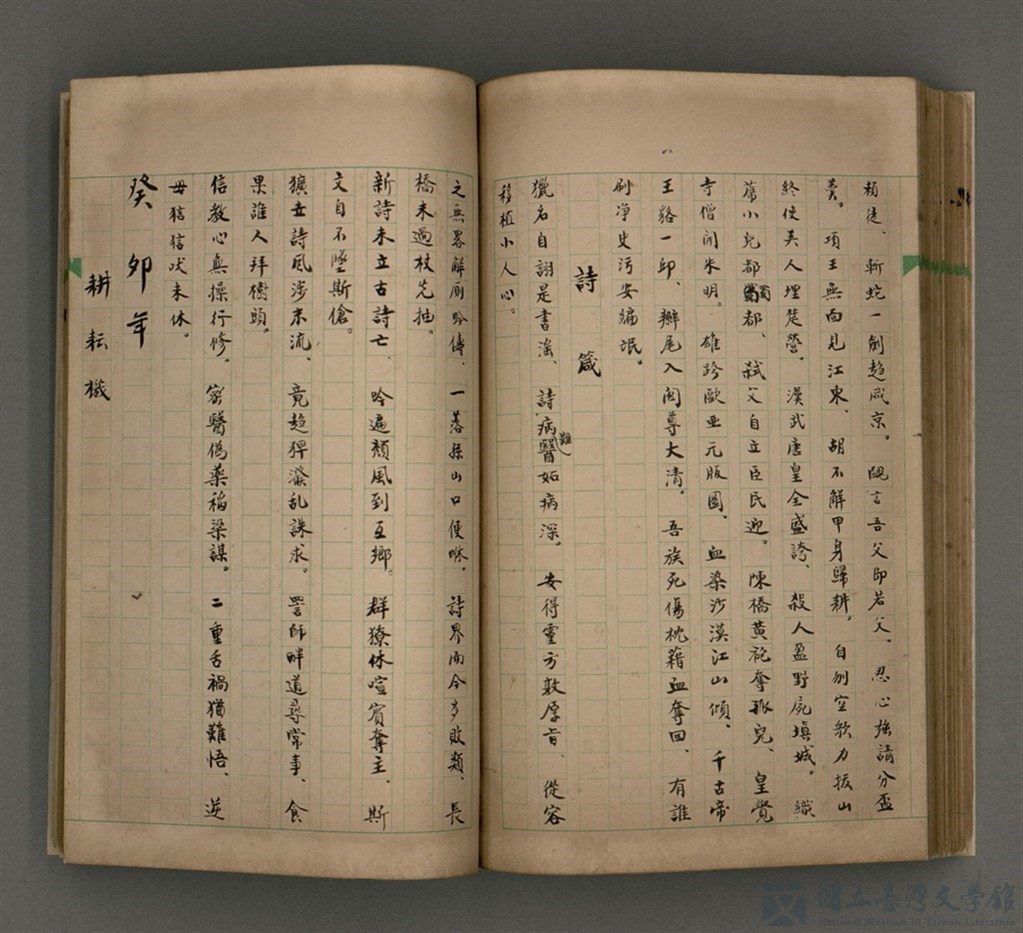 頹徒、斬蛇一劍趨咸京。覥言吾父即若父、忍心強請分盃
羹。項王無面見江東、胡不解甲身歸耕。自刎空歌力拔山
終使美人埋楚營。漢武唐皇全盛誇、殺人盈野屍填城。織
蓆小兒都蜀都、弒父自立臣民迎。陳橋黃袍奪孤兒、皇覺
寺僧開朱明。雄跨歐亚元版圖、血染沙漠江山傾。千古帝
王貉一邱、辮尾入関尊大清。吾族死傷枕藉血奪回、有誰
刷净史污安編氓。
詩箴
獵名自詡是書滛、詩病難醫妬病深。安得靈方敦厚旨、從容
移植小人心。
之無畧解厠吟儔、一落孫山口便咻。詩界而今多敗類、長
橋未過杖先抽。
新詩未立古詩亡、吟遍頹風到互鄉。群獠休喧賓奪主、斯
文自不墜斯傖。
獷世詩風涉末流、竟趨猂潑乱誅求。詈師畔道尋常事、食
果誰人拜樹頭。
信教心無操行修。宻醫偽薬稲梁謀。二重舌禍猶難悟、逆
毋狺狺吠未休。
癸夘年
耕耘機
國立臺灣文學館
National Museum of Taiwan Literature